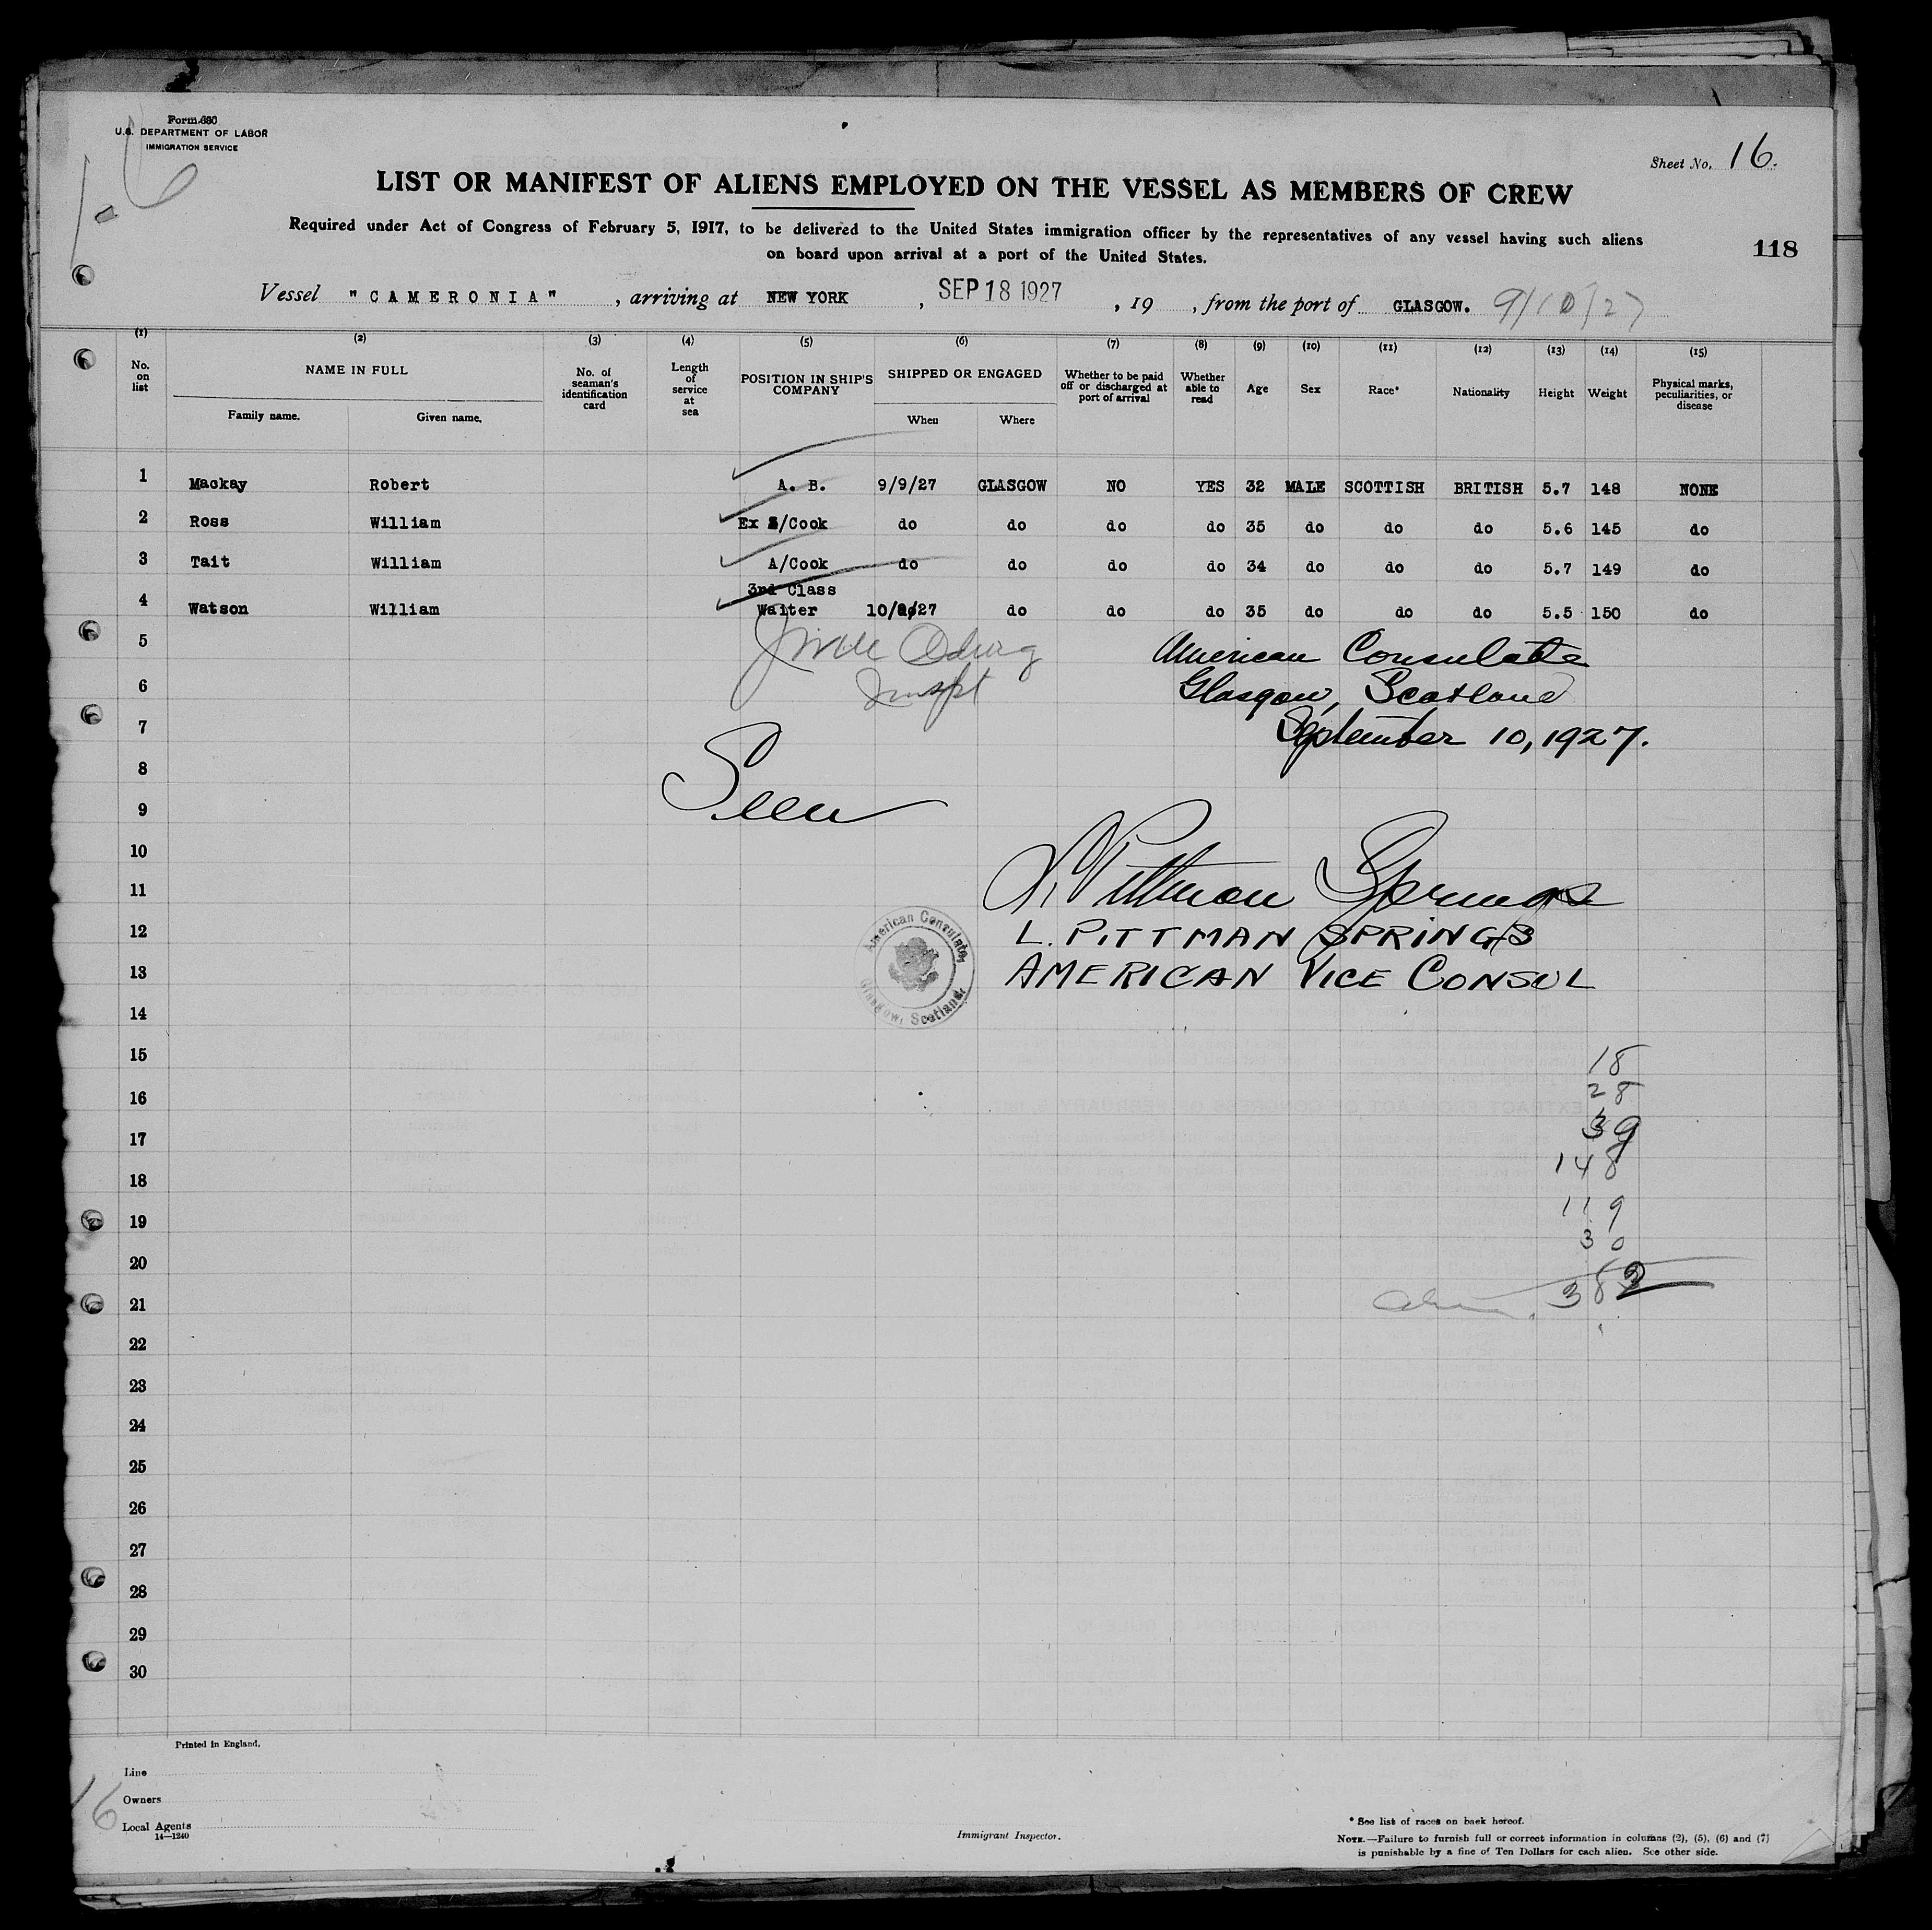 Form 680
U.S. DEPARTMENT OF LABOR
IMMIGRATION SERVICE
16
Sheet No. 16.
LIST OR MANIFEST OF ALIENS EMPLOYED ON THE VESSEL AS MEMBERS OF CREW
Required under Act of Congress of February 5, 1917, to be delivered to the United States immigration officer by the representatives of any vessel having such aliens
on board upon arrival at a port of the United States.
118
Vessel "CAMERONIA", arriving at NEW YORK, SEP 18 1927, 19 , from the port of GLASGOW. 9/10/27
(1) (2) (3) (4) (5) (6) (7) (8) (9) (10) (11) (12) (13) (14) (15)
No. on list
NAME IN FULL
Family name. Given name.
No. of seaman's identification card
Length of service at sea
POSITION IN SHIP'S COMPANY
SHIPPED OR ENGAGED
When Where
Whether to be paid off or discharged at port of arrival
Whether able to read
Age
Sex
Race*
Nationality
Height
Weight
Physical marks, peculiarities, or disease
1 Mackay Robert A. B. 9/9/27 GLASGOW NO YES 32 MALE SCOTTISH BRITISH 5.7 148 NONE
2 Ross William Ex /Cook do do do do 35 do do do 5.6 145 do
3 Tait William A/Cook do do do do 34 do do do 5.7 149 do
3rd Class
4 Watson William Waiter 10/9/27 do do do 35 do do do 5.5 150 do
5
American Consulate
6
Glasgow, Scotland
7
September 10, 1927.
8
Seen
9
10
L. Pittman Springs
11
12
L. PITTMAN SPRINGS
13
AMERICAN VICE CONSUL
American Consulate,
Glasgow, Scotland.
14
15
18
16
28
17
39
18
148
19
119
20
30
21
382
22
23
24
25
26
27
28
29
30
Printed in England.
Line
Owners
Local Agents
14—1240
16
Immigrant Inspector.
* See list of races on back hereof.
NOTE.—Failure to furnish full or correct information in columns (2), (5), (6) and (7)
is punishable by a fine of Ten Dollars for each alien. See other side.